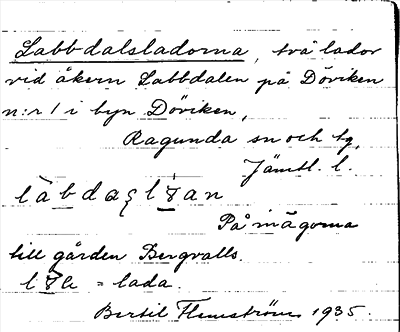 Labbdalsladorna, två lador
vid åkern Labbdalen på Döviken
n:r 1 i byn Döviken,
Ragunda sn och tg,
Jämtl. l.
På mägorna
till gården Bergvalls.
= lada.
Bertil Flemström 1935.